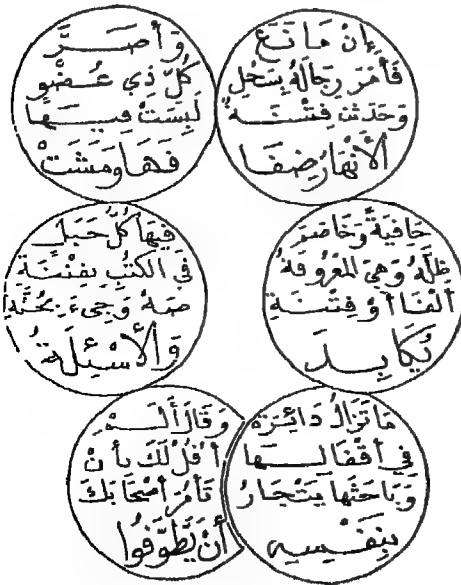 إِنْ مَانَعَ
فَأَمَرَ رِجَالَهُ بِسَحْلِ
وَحَدَثَ فِتْنَةٌ
الأَنْهَارِ ضِفَا
وَأَصَرَّ
كُلّ ذي عُضْوٍ
لَبِسَتْ فِيهَا
فَهَا وَمَشَتْ
خَافِيَةً وَخَاصَرَ
ظِلَّهُ وَهِيَ المَعْرُوفَةُ
أَلْفَا أَوْ فِتْنَةِ
يُكَابِدَ
فِيهَا كُلُّ
في الكُتُبِ بفتْنَة
صَهُ وَجِيءَ
وَالأَسْئِلَةُ
مَاتَزَالُ دَائِرَة
في أَقْفَالِهَا
وَبَاحَثَهَا يَتَجَارُ
بِنَفْسِهِ
وَقَالَ أَلَمْ
أَقُلْ لَكَ بِأَنْ
تَأْمُرَ أَصْحَابَكَ
أَنْ يَطَّوَّفُوا